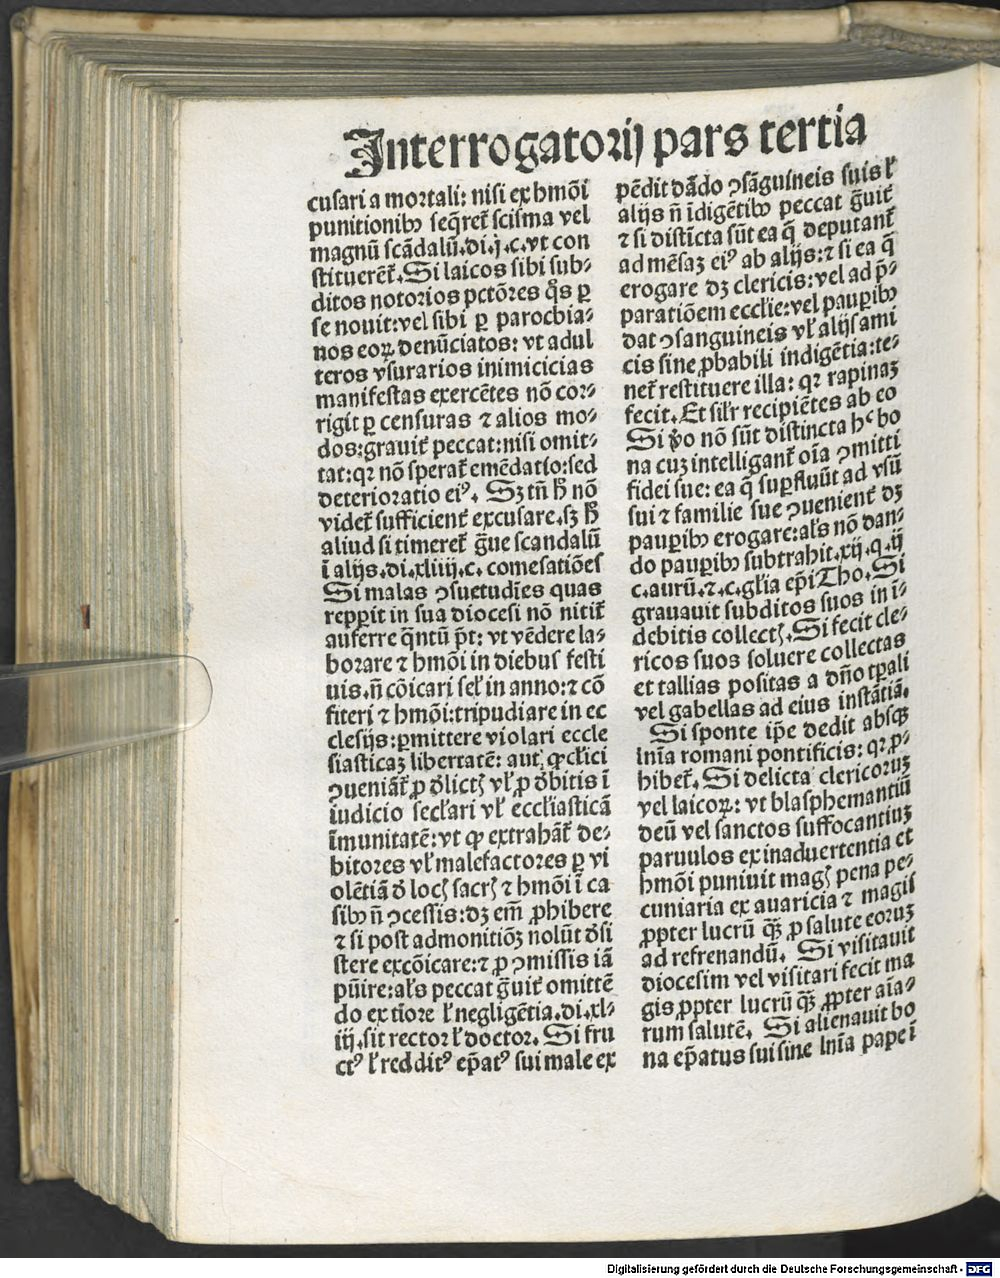 Interrogatorij pars tertia
cusari a mortali: nisi ex hmõi
punitionibꝰ seq̃ret̃ scisma vel
magnũ scãdalũ.di.j.c.vt con
stituerẽt̃.Si laicos sibi sub⸗
ditos notorios pctõres q̃s ꝑ
se nouit:vel sibi ꝑ parochia⸗
nos eoꝝ denũciatos: vt adul
teros vsurarios inimicicias
manifestas exercẽtes nõ cor⸗
rigit ꝑ censuras ⁊ alios mo⸗
dos:grauit̃ peccat:nisi omit⸗
tat:qꝛ nõ sperat̃ emẽdatio:sed
deterioratio eiꝰ. Sꝫ tñ h̃ nõ
videt̃ sufficient̃ excusare.sꝫ h̃
aliud si timeret̃ g̃ue scandalũ
ĩ alijs.di.xliiij.c.comesatiões
Si malas ꝯsuetudĩes quas
repperit in sua diocesi nõ nitit̃
auferre q̃ntũ p̃t: vt vẽdere la⸗
borare ⁊ hmõi in diebus festi
uis.ñ cõicari sel̃ in anno:⁊ cõ
fiteri ⁊ hmõi:tripudiare in ec
clesijs:ꝑmittere violari eccle
siasticaꝫ libertatẽ: aut ꝙ cl̃ici
ꝯueniãt̃ ꝓ d̃lictꝭ vl̃ ꝓ d̃bitis ĩ
iudicio secl̃ari vl̃ eccl̃iasticã
ĩmunitatẽ:vt ꝙ extrahãt̃ de⸗
bitores vl̃ malefactores ꝑ vi
olẽtiã d̃ locꝭ sacrꝭ ⁊ hmõi ĩ ca
sibꝰ ñ ꝯcessis:dꝫ em̃ ꝓhibere
⁊ si post admonitiõꝫ nolũt d̃si
stere excõicare:⁊ ꝓ ꝯmissis iã
pũire:al̃s peccat g̃uit̃ omittẽ
do ex tiore l̃ negligẽtia.di.xl⸗
iij.sit rector l̃ doctor. Si fru
ctꝰ l̃ redditꝰ ep̃atꝰ sui male ex
pẽdit dãdo ꝯsãguineis suis l̃
alijs ñ ĩdigẽtibꝰ peccat g̃uit̃
⁊ si distĩcta sũt ea q̃ deputant̃
ad mẽsaꝫ eiꝰ ab alijs:⁊ si ea q̃
erogare dꝫ clericis:vel ad p̃⸗
paratiõem eccl̃ie:vel pauꝑibꝰ
dat ꝯsanguineis vl̃ alijs ami
cis sine ꝓbabili indigẽtia:te⸗
net̃ restituere illa: qꝛ rapinaꝫ
fecit.Et sil̃r recipiẽtes ab eo
Si ṽo nõ sũt distincta hͨ bo
na cuꝫ intelligant̃ oĩa ꝯmitti
fidei sue: ea q̃ suꝑfluũt ad vsũ
sui ⁊ familie sue ꝯuenient̃ dꝫ
pauꝑibꝰ erogare:al̃s nõ dan⸗
do pauꝑibꝰ subtrahit.xij.q.ij
c.aurũ.⁊.c.gl̃ia ep̃i Tho.Si
grauauit subditos suos in ĩ⸗
debitis collectꝭ.Si fecit cle⸗
ricos suos soluere collectas
et tallias positas a dño tꝑali
vel gabellas ad eius instãtiã.
Si sponte ip̃e dedit absqꝫ
lnĩa romani pontificis: qꝛ ꝓ⸗
hibet̃.Si delicta clericoruꝫ
vel laicoꝝ: vt blasphemantiũ
deũ vel sanctos suffocantiuꝫ
paruulos ex inaduertentia et
hmõi puniuit magꝭ pena pe⸗
cuniaria ex auaricia ⁊ magis
ꝓpter lucrũ q̃ꝫ ꝓ salute eoruꝫ
ad refrenandũ. Si visitauit
diocesim vel visitari fecit ma
gis ꝓpter lucrũ q̃ꝫ ꝓpter aĩa⸗
rum salutẽ. Si alienauit bo
na ep̃atus sui sine lnĩa pape ĩ
Digitalisierung gefördert durch die Deutsche Forschungsgemeinschaft - DFG